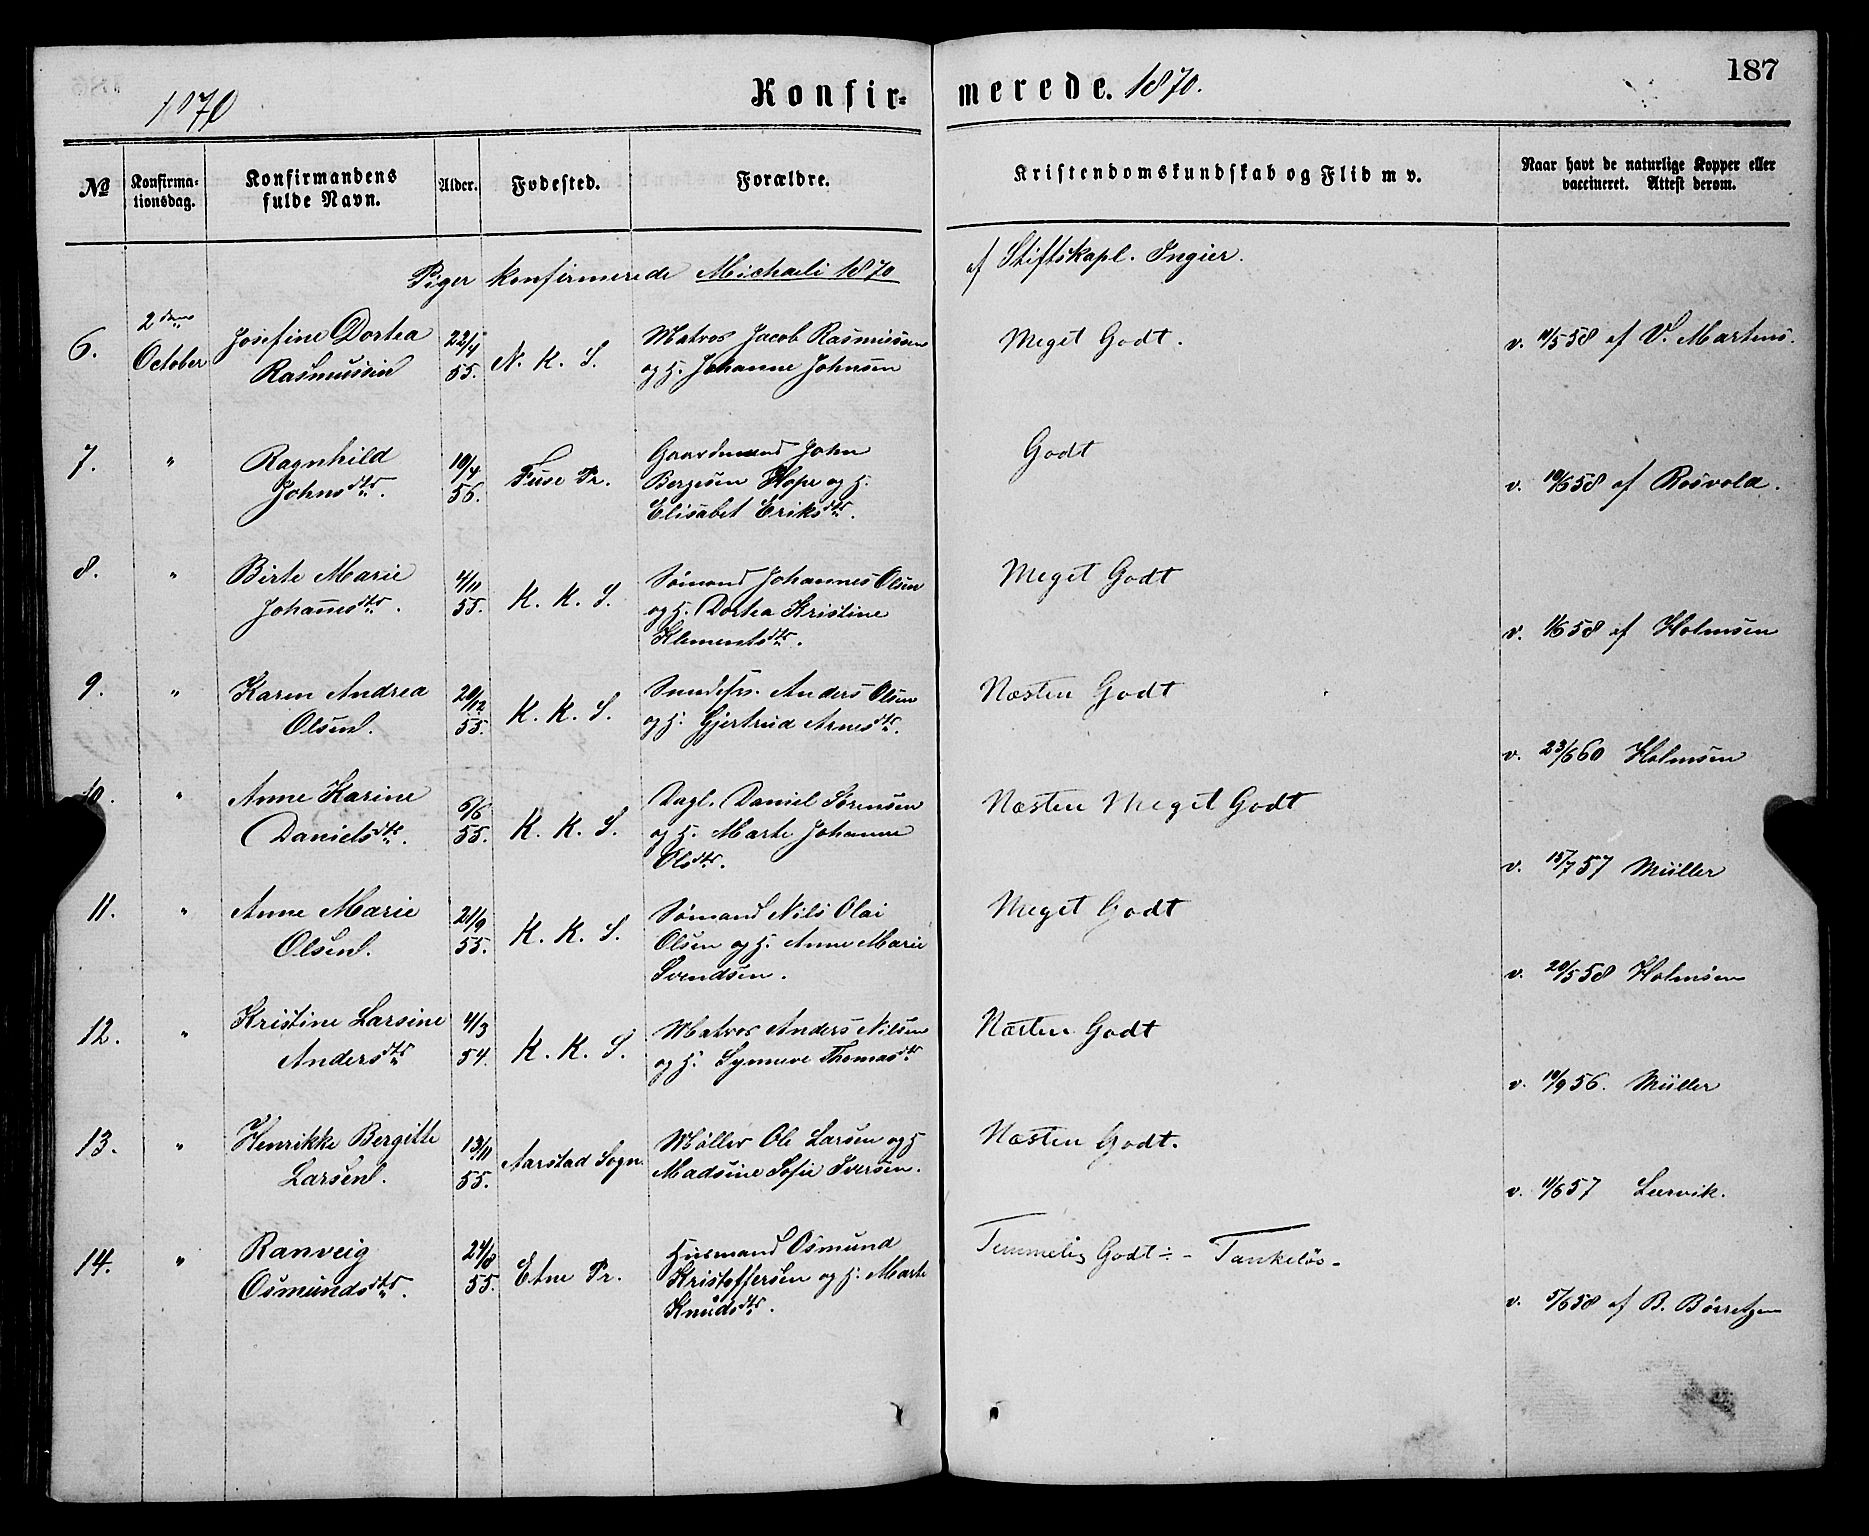 187
1870
Konfir=
merede. 1870.
No
Konfirma=
tionsdag.
Konfirmandens
fulde Navn.
Alder.
Fødested.
Forældre.
Kristendomskundskab og Flid m v.
Naar havt de naturlige Kopper eller
vaccineret. Attest derom.
Piger konfirmerede Michaeli 1870 af Stiftskapl. Ingier.
6.
2den
October
Josefine Dortea
Rasmussen
22/4
55.
N. K. S.
Matros Jacob Rasmussen
og H. Johanne Johnsen
Meget Godt.
v. 11/5 58 af V. Martens.
7.
"
Ragnhild
Johnsdtr.
10/4
56.
Fuse Pr.
Gaardmand John
Bergesen Hope og H.
Elisabet Eriksdtr.
Godt
v. 10/6 58 af Rosvold.
8.
"
Birte Marie
Johansdtr.
4/11
55.
K. K. S.
Sömand Johannes Olsen
og H. Dortea Kristine
Klementsdtr.
Meget Godt
v. 1/6 58 af Holmsen
9.
"
Karen Andrea
Olsen.
20/12
55.
K. K. S.
Anders Olsen
og H. Gjertrud Arnesdtr.
Næsten Godt
v. 23/6 60 Holmsen
10.
"
Anne Karine
Danielsdtr.
6/6
55.
K. K. S.
Dagl. Daniel Sörensen
og H. Marte Johanne
Olsdtr.
Næsten Meget Godt
v. 15/7 57 Müller
11.
"
Anne Marie
Olsen.
21/9
55.
K. K. S.
Sömand Nils Olai
Olsen og H. Anne Marie
Svendsen.
Meget Godt
v. 20/5 58 Holmsen
12.
"
Kristine Larsine
Andersdtr
4/3
54.
K. K. S.
Matros Anders Nilsen
og H. Synneve Thomasdtr
Næsten Godt
v. 18/9 56. Müller
13.
"
Henrikke Bergitte
Larsen.
13/11
55.
Aarstad Sogn
Møller Ole Larsen og H
Madsine Sofie Iversen.
Næsten Godt.
v. 11/6 57 Leervik.
14.
"
Ranveig
Osmundsdtr.
24/8
55.
Etne Pr.
Husmand Osmund
Kristoffersen og H. Marte
Knudsdtr.
Temmelig Godt ÷ - Tankelös -
v. 5/6 58 af B. Börretzen